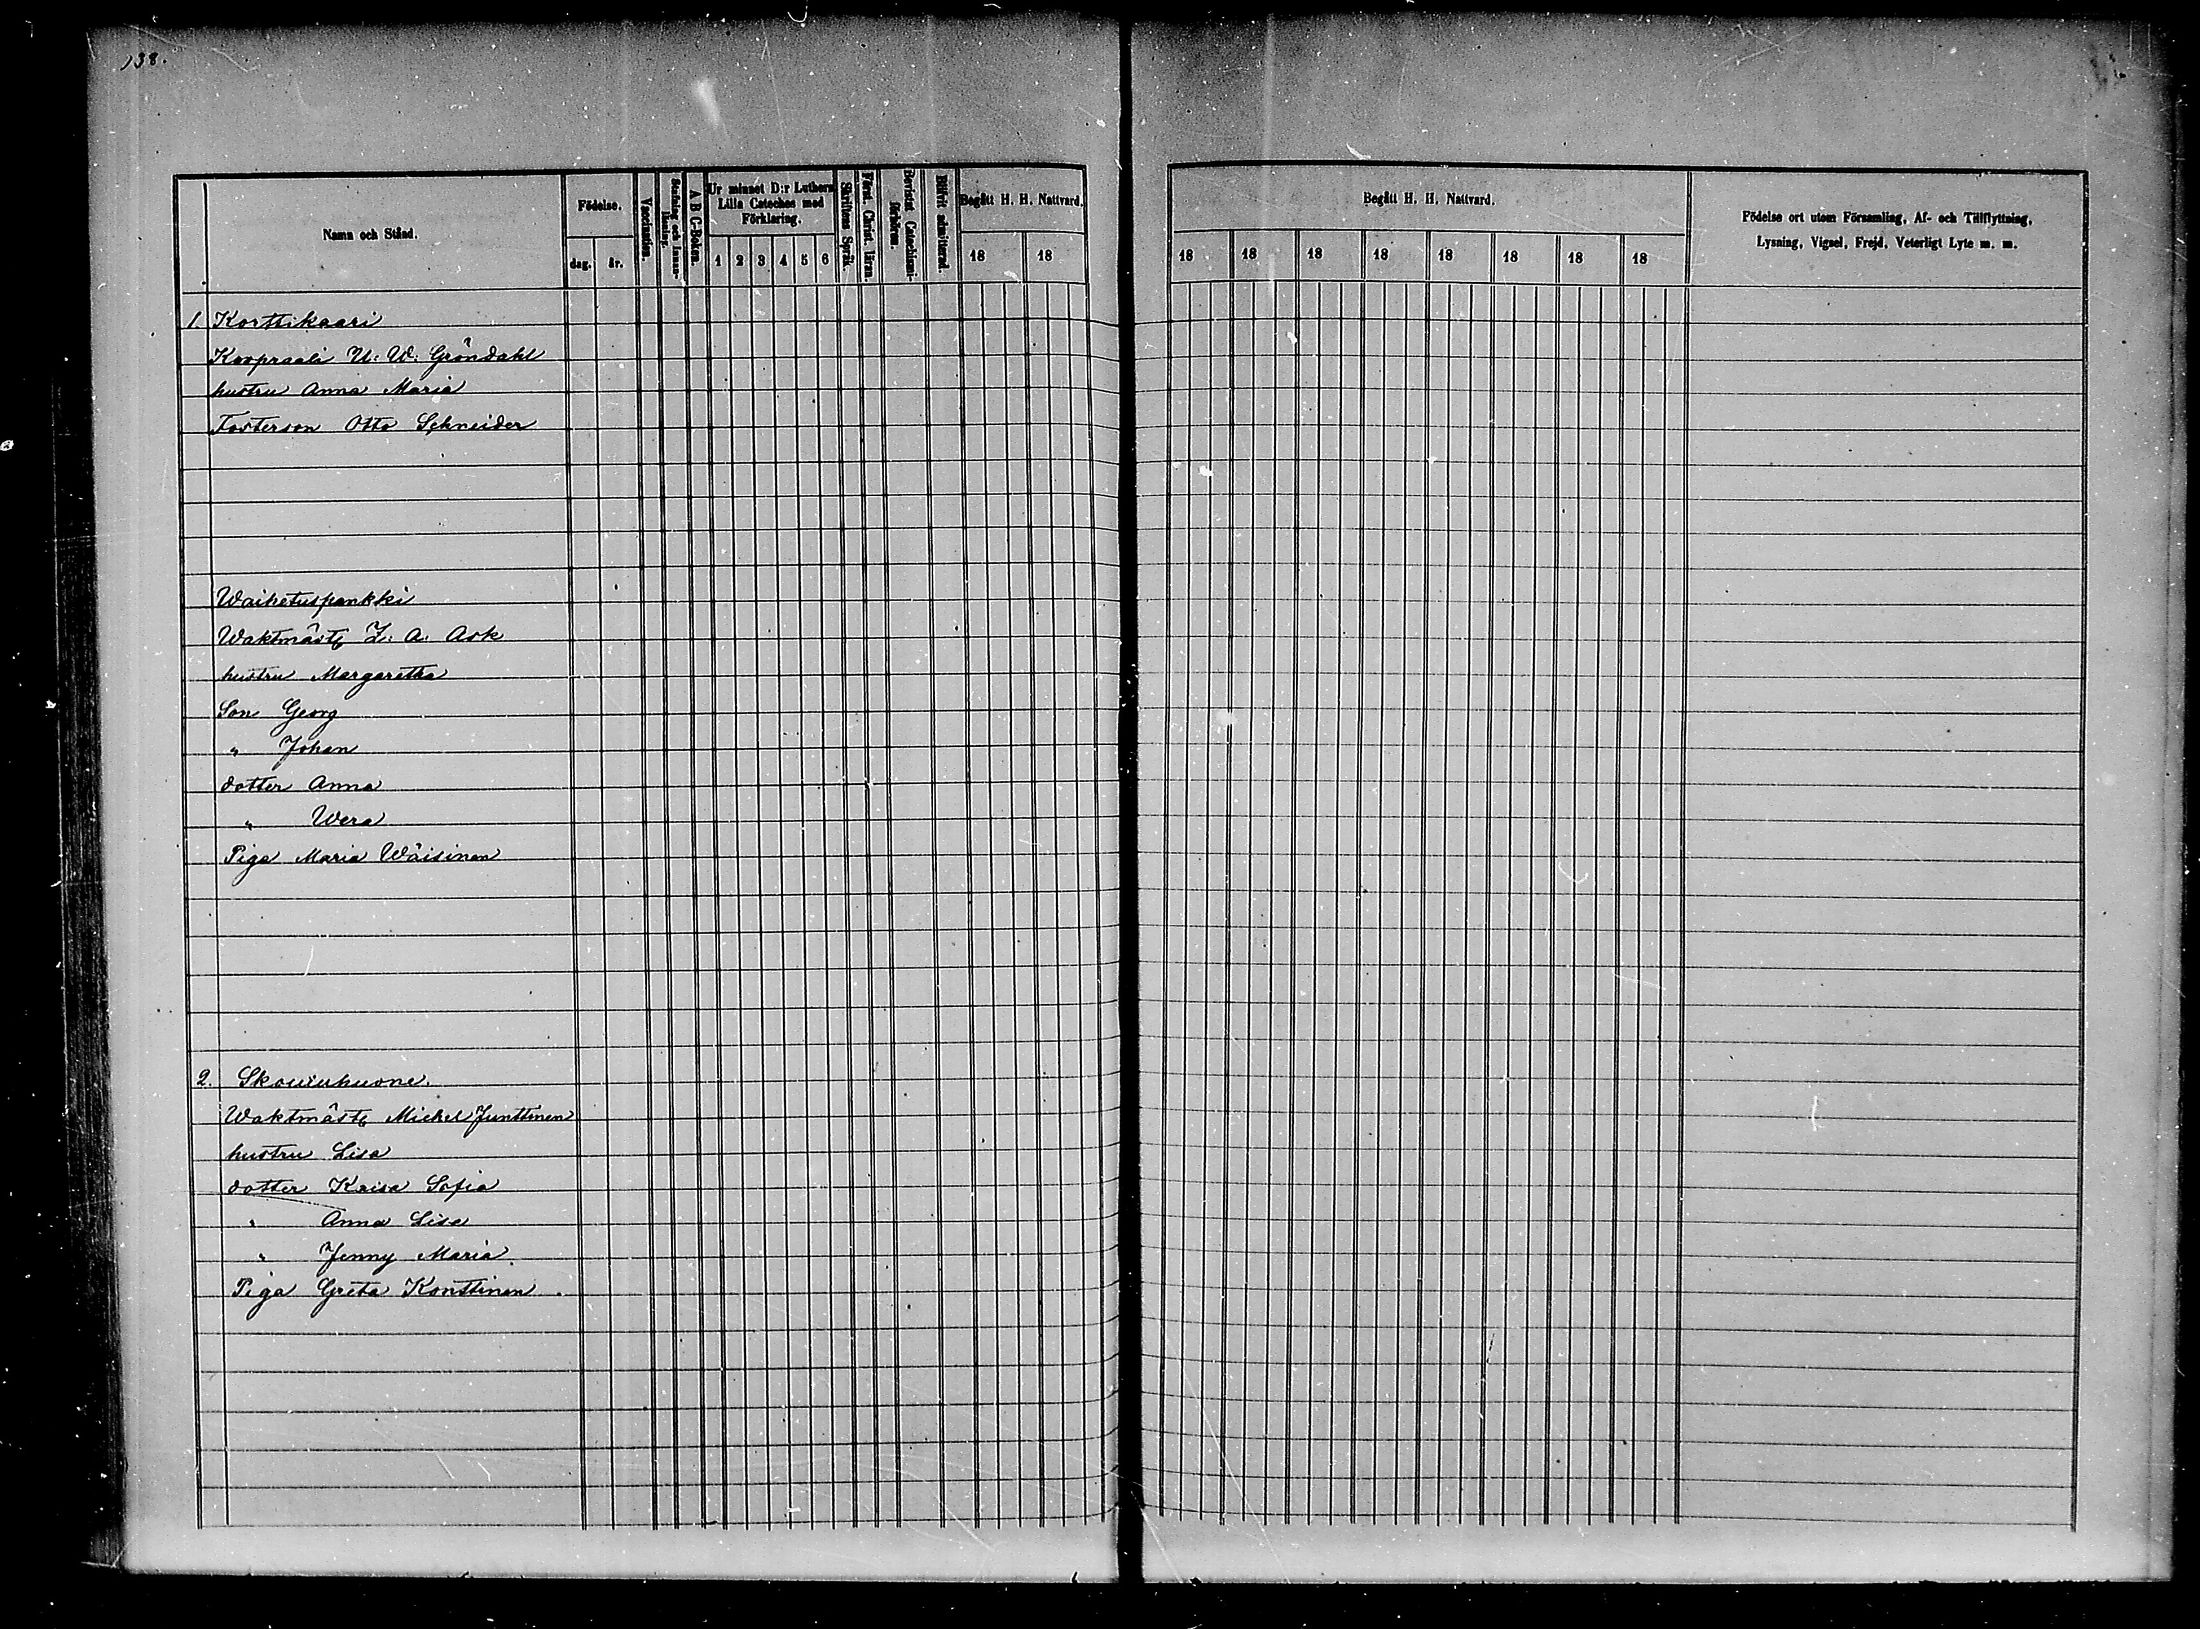 138.
Namn och Stånd.
Födelse.
dag.
år.
Vaccination.
Stafning och Innan-
läsning.
A B C-Boken.
Ur minnet D:r Luthers
Lilla Cateches med
Förklaring.
1 2 3 4 5 6
Skriftens Språk.
Först. Christ. läran.
Bevistat Catechismi-
förhören.
Blifvit admitterad.
Begått H. H. Nattvard.
18 18
Begått H. H. Nattvard.
18 18 18 18 18 18 18 18
Födelse ort utom Församling, Af- och Tillflyttning,
Lysning, Vigsel, Frejd, Veterligt Lyte m. m.
1. Korttikaari
Koopraali U: W: Gröndahl
hustru Anna Maria
Fosterson Otto Schneider
Waihetuspankki
Waktmäst. Z: A: Ask
hustru Margaretha
Son Georg
" Johan
dotter Anna
" Wera
Piga Maria Wäisinen
2. Skouruhuone.
Waktmäst. Michel Junttinen
hustru Lisa
dotter Kaisa Sofia
" Anna Lisa
" Jenny Maria.
Piga Greta Konttinen.